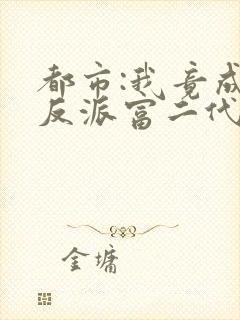 都市:我竟成
反派富二代
金墉